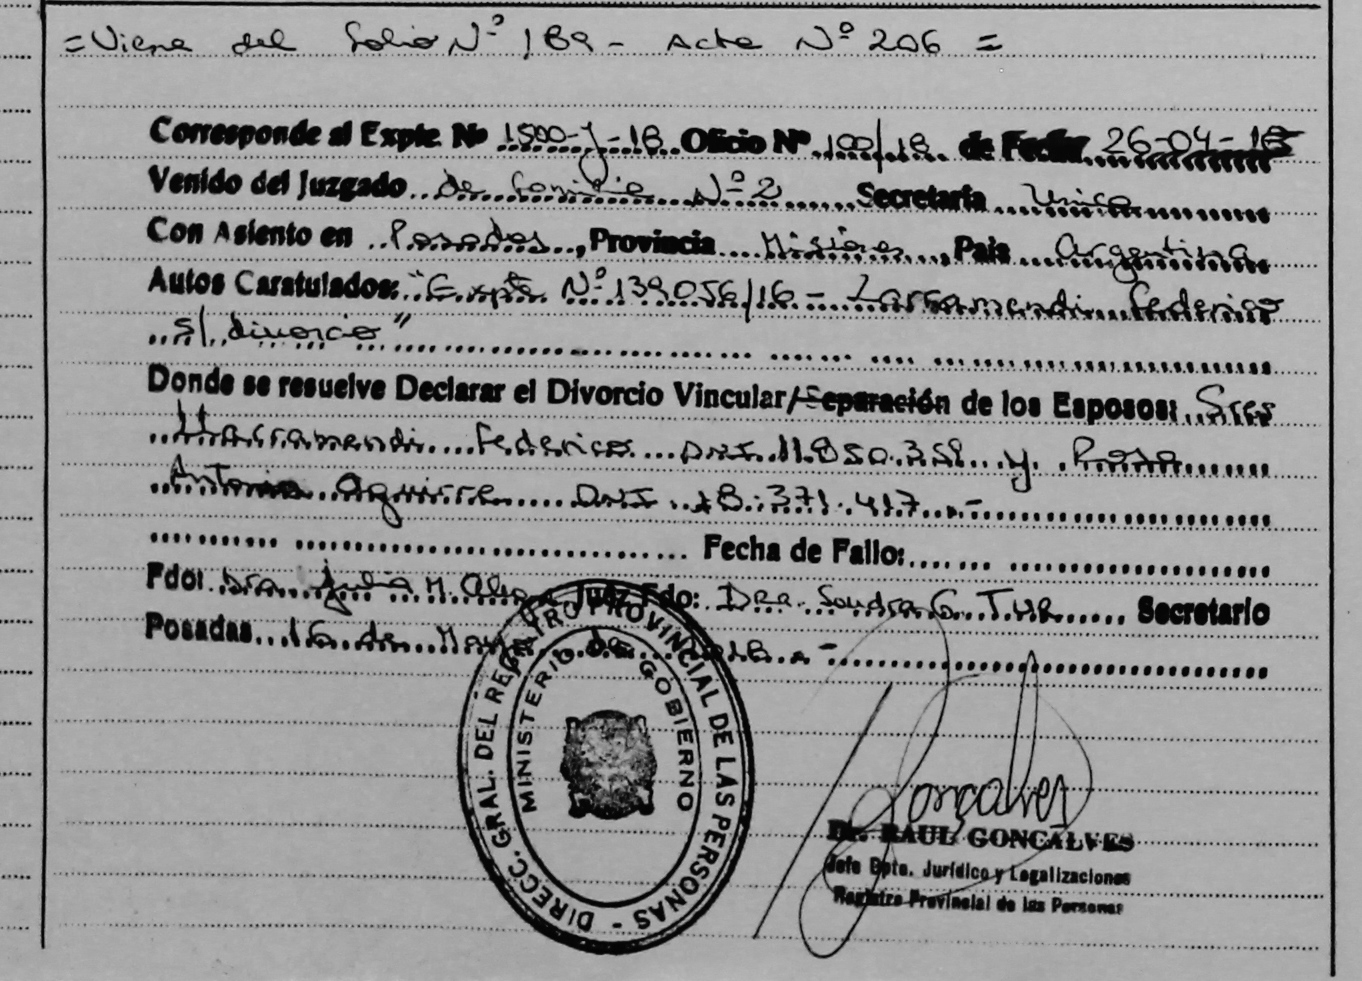 =Viene del Folio Nº 189 - Acta Nº 206 =
Corresponde al Expte. Nº 1500-J-18 Oficio Nº 100/18 de Fecha 26-04-18
Venido del Juzgado de Familia Nº 2 Secretaría Unica
Con Asiento en Posadas, Provincia Misiones, País Argentina
Autos Caratulados: "Expte Nº 139056/16 - Larramendi Federico
s/ divorcio"
Donde se resuelve Declarar el Divorcio Vincular/Separación de los Esposos: Sres
Larramendi Federico DNI 11.850.358 y Rosa
Antonia Aguirre DNI 18.371.417.-
Fecha de Fallo:
Fdo: Dra. Julia M. Juez Fdo: Dra. Sandra G. Secretario
Posadas 16 de Mayo de 2018.-
DIRECC. GRAL. DEL REGISTRO PROVINCIAL DE LAS PERSONAS -
MINISTERIO DE GOBIERNO
Gonçalves
Dr. RAUL GONCALVES
Jefe Dpto. Jurídico y Legalizaciones
Registro Provincial de las Personas